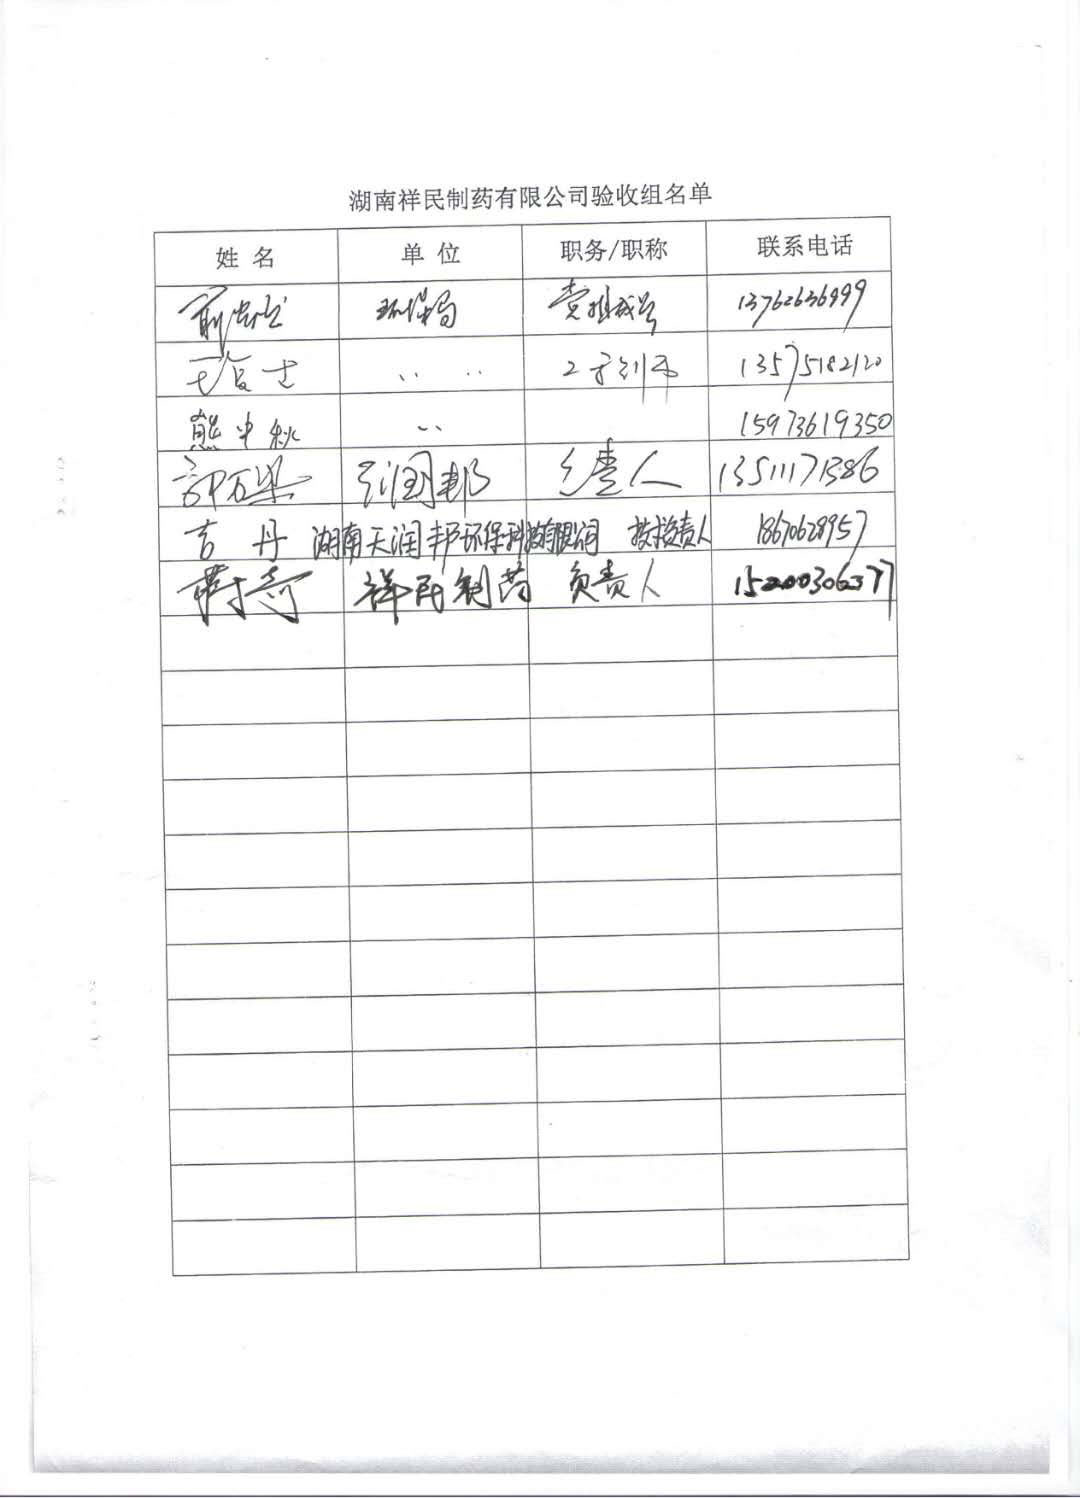 湖南祥民制药有限公司验收组名单
姓 名 单 位 职务/职称 联系电话
环保局 党组成员 13762636999
13575182120
熊中秋 15973619350
润邦 负责人 13511171386
吉 丹 湖南天润邦环保科技有限公司 技术负责人 18670628957
祥民制药 负责人 15200306377